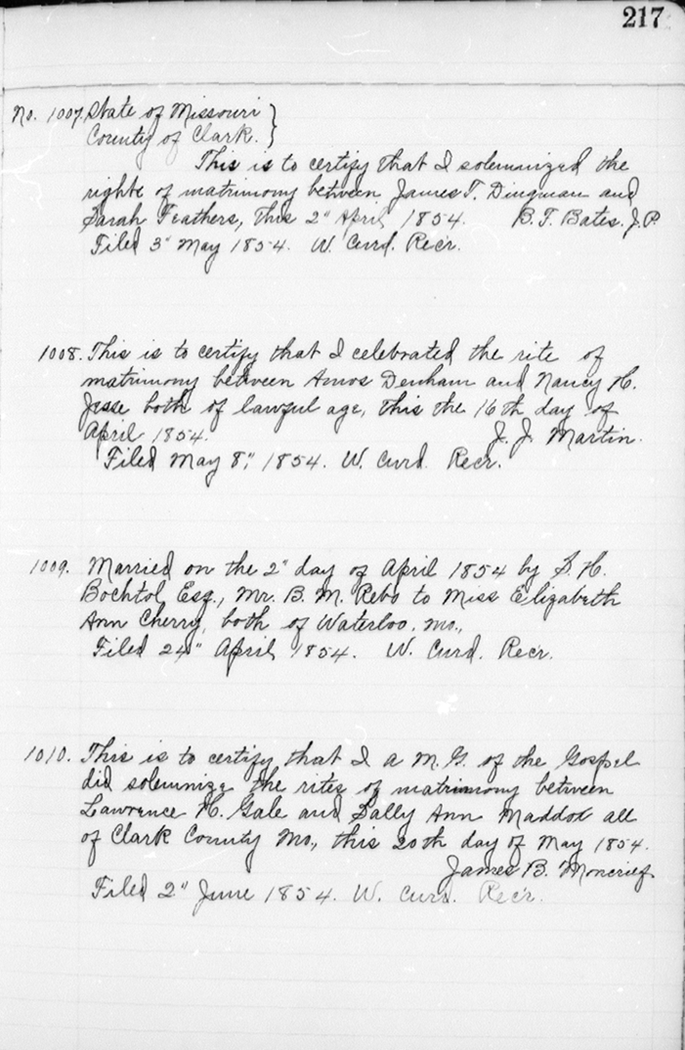 217
No. 1007. State of Missouri }
County of Clark. }
This is to certify that I solemnized the
righte of matrimony between James T. Dingman and
Sarah Feathers, this 2" April 1854. B. T. Bates. J. P.
Filed 3" May 1854. W. Curd. Rec'r.
1008. This is to certify that I celebrated the rite of
matrimony between Amos Denham and Nancy H.
Jesse both of lawful age, this the 16th day of
April 1854. J. J. Martin.
Filed May 8," 1854. W. Curd. Recr.
1009. Married on the 2" day of April 1854 by S. H.
Bochtol Esq., Mr. B. M. Rebo to Miss Elizabeth
Ann Cherry, both of Waterloo. Mo.,
Filed 24" April 1854. W. Curd. Recr.
1010. This is to certify that I a M. G. of the Gospel
did solemnize the rites of matrimony between
Lawrence H. Gale and Sally Ann Maddox all
of Clark County Mo., this 20th day of May 1854.
James B. Moncrief.
Filed 2" June 1854. W. Curd. Rec'r.